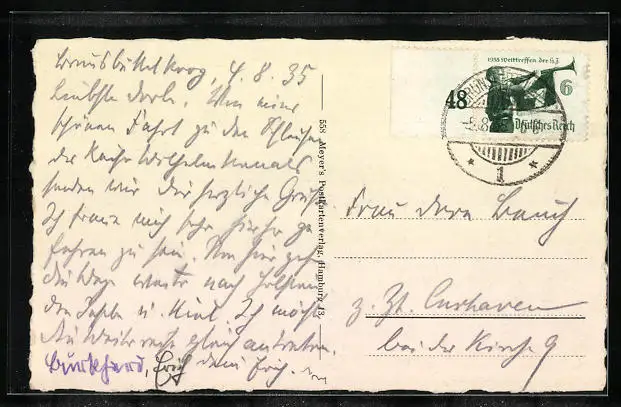 Brunsbüttelkoog, 4.8.35
Liebste Dora. Von einer
schönen Fahrt zu den Schleusen
des Kaiser Wilhelmkanals
senden wir Dir herzliche Grüße
Ich freue mich sehr hierher ge
fahren zu sein. Von hier geht
die Weg weiter nach Holstein
u. Kiel. Ich möchte
die Weiterreise gleich antreten.
Burkhard, Erich
558 Meyer's Postkartenverlag, Hamburg 13
48
1935 Welttreffen der HJ
6
Deutsches Reich
1
Frau Dora Bauch
z. Zt. Cuxhaven
bei der Kirche 9